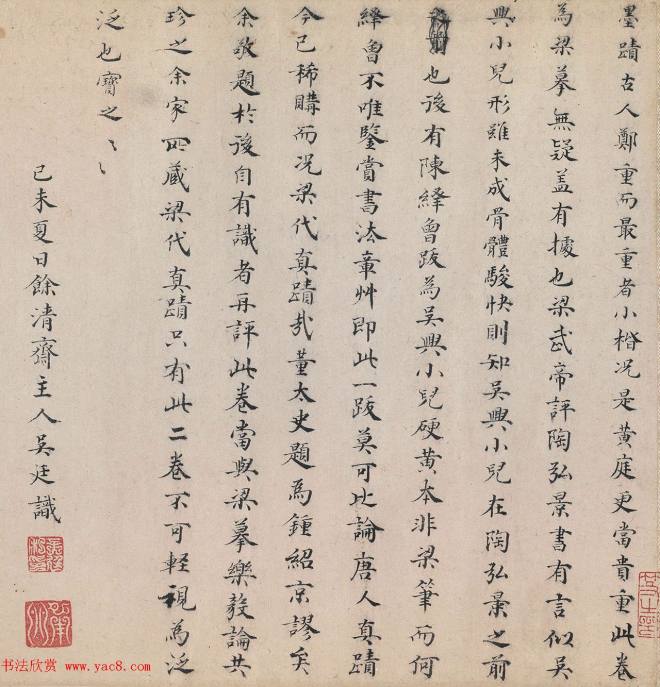 墨蹟古人鄭重而最重者小楷况是黄庭更當貴重此卷
為梁摹無疑盖有據也梁武帝評陶弘景書有言似吴
興小兒形雖未成骨體駿快則知吴興小兒在陶弘景之前
也後有陳繹曾跋為吴興小兒硬黄本非梁筆而何
繹曾不唯鑒賞書法章艸即此一跋莫可比論唐人真蹟
今已稀購而况梁代真蹟哉董太史題為鍾紹京謬矣
余敬題於後自有識者再評此卷當與梁摹樂毅論共
珍之余家所藏梁代真蹟只有此二卷不可軽視為泛
泛也寶之〻
己未夏日餘清齋主人吴廷識
书法欣赏 www.yac8.com